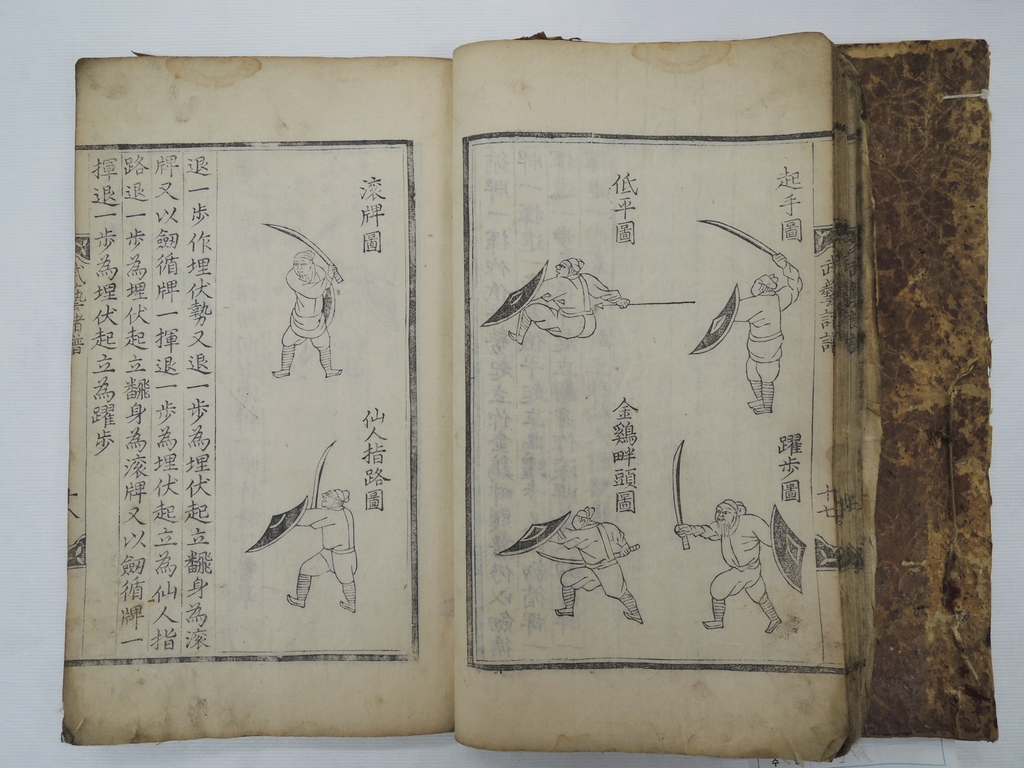 武藝諸譜
十七
起手圖
躍步圖
低平圖
金鷄畔頭圖
滚牌圖
仙人指路圖
退一歩作埋伏勢又退一歩為埋伏起立翻身為滚
牌又以劔循牌一揮退一歩為埋伏起立為仙人指
路退一歩為埋伏起立翻身為滚牌又以劔循牌一
揮退一歩為埋伏起立為躍歩
武藝諸譜
十八